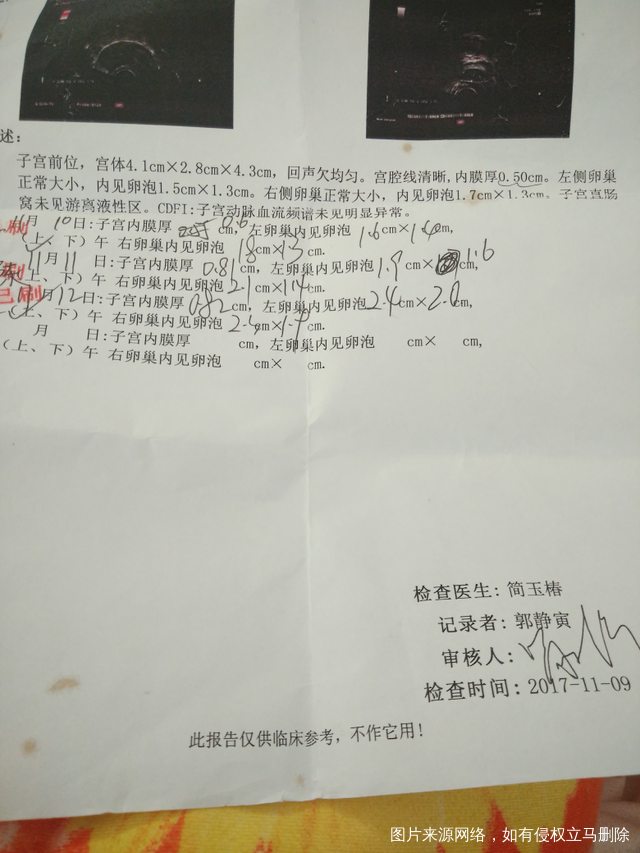 述：
子宫前位，宫体4.1cm×2.8cm×4.3cm，回声欠均匀。宫腔线清晰，内膜厚0.50cm。左侧卵巢
正常大小，内见卵泡1.5cm×1.3cm。右侧卵巢正常大小，内见卵泡1.7cm×1.3cm。子宫直肠
窝未见游离液性区。CDFI：子宫动脉血流频谱未见明显异常。
11月 10日：子宫内膜厚 0.6 cm，左卵巢内见卵泡 1.6cm×1.4cm，
（上、下）午 右卵巢内见卵泡 1.8cm×1.3cm.
11月11日：子宫内膜厚 0.81cm，左卵巢内见卵泡1.9cm×1.6
（上、下）午 右卵巢内见卵泡 2.1cm×1.4cm.
已刷
月12日：子宫内膜厚 0.82cm，左卵巢内见卵泡2.4cm×2.0cm，
（上、下）午 右卵巢内见卵泡 cm× cm.
月 日：子宫内膜厚 cm，左卵巢内见卵泡 cm× cm，
（上、下）午 右卵巢内见卵泡 cm× cm.
检查医生：简玉椿
记录者：郭静寅
审核人：
检查时间：2017-11-09
此报告仅供临床参考，不作它用！
图片来源网络，如有侵权立马删除